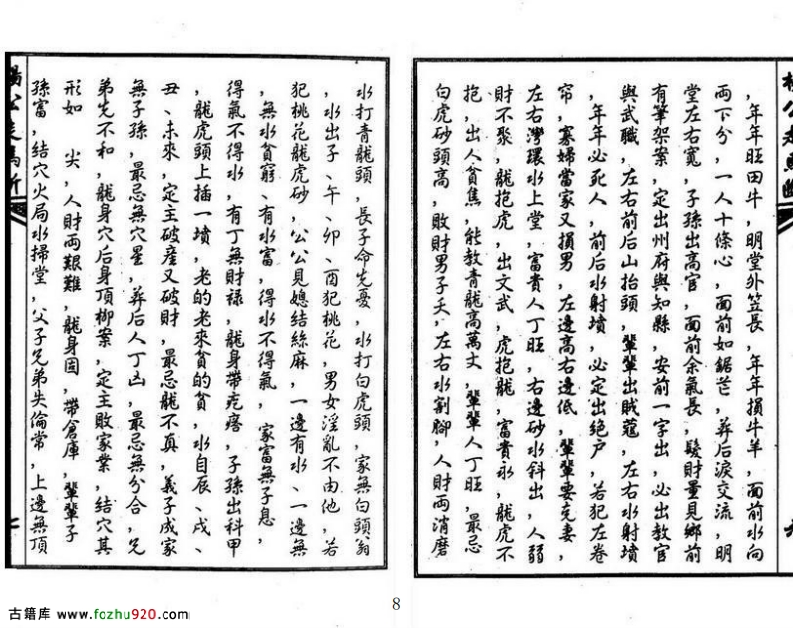 ，年年旺田牛，明堂外笠長，年年損牛羊，面前水向
両下分，一人十條心，面前如鋸芒，葬后淚交流，明
堂左右寬，子孫出高官，面前余氣長，髮財量見鄉前
有筆架案，定出州府與知縣，安前一字出，必出教官
與武職，左右前后山抬頭，輩輩出賊蔻，左右水射墳
，年年必死人，前后水射墳，必定出絕户，若犯左卷
帘，寡婦當家又損男，左邊高右邊低，輩輩要克妻，
左右灣環水上堂，富貴人丁旺，右邊砂水斜出，人弱
財不聚，龍抱虎，出文武，虎抱龍，富貴永，龍虎不
抱，出人貧焦，能教青龍高萬丈，輩輩人丁旺，最忌
白虎砂頭高，敗財男子夭，左右水割腳，人財両消磨
水打青龍頭，長子命先憂，水打白虎頭，家無白頭翁
，水出子、午、卯、酉犯桃花，男女淫亂不由他，若
犯桃花龍虎砂，公公見媳結絲麻，一邊有水、一邊無
，無水貧窮、有水富，得水不得氣，家富無子息，
得氣不得水，有丁無財禄，龍身帶疙瘩，子孫出科甲
，龍虎頭上插一墳，老的老來貧的貧，水自辰、戌、
丑、未來，定主破產又破財，最忌龍不真，義子成家
無子孫，最忌無穴星，葬后人丁凶，最忌無分合，兄
弟先不和，龍身穴后身頂柳案，定主敗家業，結穴其
形如　尖，人財両艱難，龍身圓，帶倉庫，輩輩子
孫富，結穴火局水掃堂，父子兄弟失倫常，上邊無頂
七
8
古籍库 www.fozhu920.com